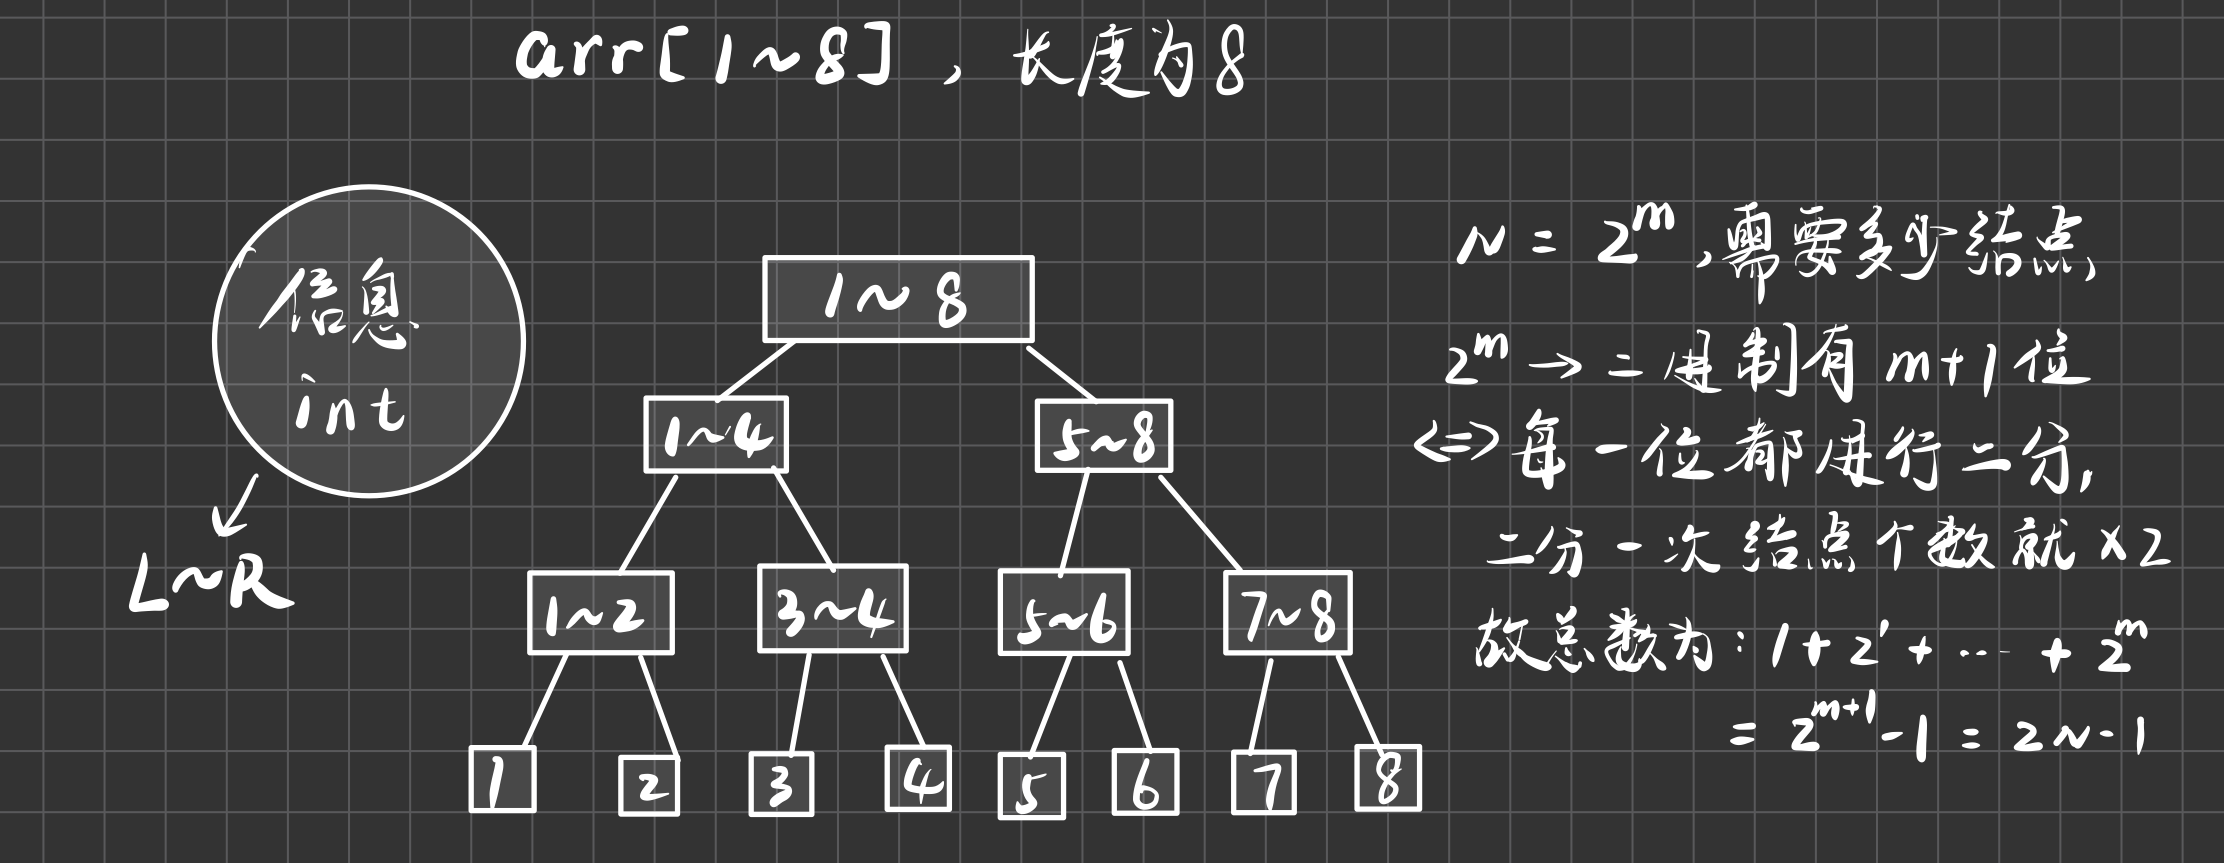 arr[1~8]，长度为8
信息
int
L~R
1~8
1~4
5~8
1~2
3~4
5~6
7~8
1
2
3
4
5
6
7
8
N = 2^m,需要多少结点,
2^m → 二进制有 m+1位
<=> 每一位都进行二分,
二分一次结点个数就 ×2
故总数为: 1 + 2^1 + … + 2^m
= 2^{m+1} - 1 = 2N - 1